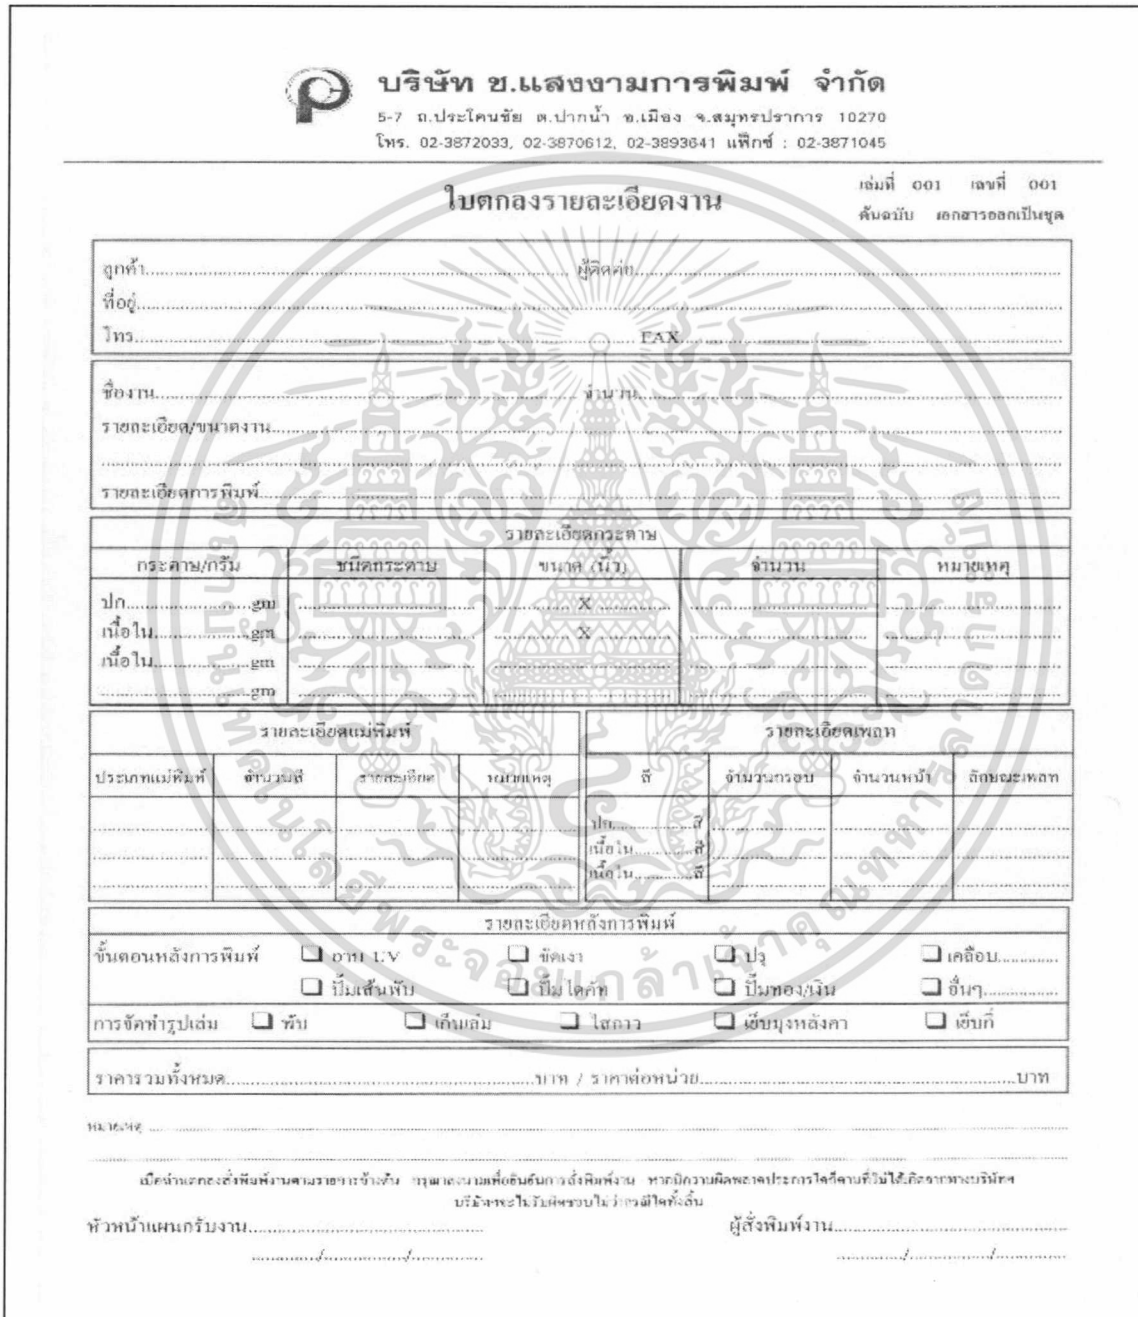 บริษัท ช.แสงงามการพิมพ์ จำกัด
5-7 ถ.ประโคนชัย ต.ปากน้ำ อ.เมือง จ.สมุทรปราการ 10270
โทร. 02-3872033, 02-3870612, 02-3893641 แฟ็กซ์ : 02-3871045
ใบตกลงรายละเอียดงาน
เล่มที่ 001 เลขที่ 001
ต้นฉบับ เอกสารออกเป็นชุด
ลูกค้า ผู้ติดต่อ
ที่อยู่
โทร FAX
ชื่องาน จำนวน
รายละเอียด/ขนาดงาน
รายละเอียดการพิมพ์
รายละเอียดกระดาษ
กระดาษ/กรัม ชนิดกระดาษ ขนาด (นิ้ว) จำนวน หมายเหตุ
ปก gm X
เนื้อใน gm X
เนื้อใน gm
gm
รายละเอียดแม่พิมพ์ รายละเอียดเพลท
ประเภทแม่พิมพ์ จำนวนสี รายละเอียด หมายเหตุ สี จำนวนกรอบ จำนวนหน้า ลักษณะเพลท
ปก สี
เนื้อใน สี
เนื้อใน สี
รายละเอียดหลังการพิมพ์
ขั้นตอนหลังการพิมพ์ อาบ UV ขัดเงา ปรุ เคลือบ
ปั๊มเส้นพับ ปั๊มไดคัท ปั๊มทอง/เงิน อื่นๆ
การจัดทำรูปเล่ม พับ เก็บเล่ม ไสกาว เย็บมุงหลังคา เย็บกี่
ราคารวมทั้งหมด บาท / ราคาต่อหน่วย บาท
หมายเหตุ
เมื่อท่านตกลงสั่งพิมพ์งานตามรายการข้างต้น กรุณาลงนามเพื่อยืนยันการสั่งพิมพ์งาน หากมีความผิดพลาดประการใดก็ตามที่ไม่ได้เกิดจากทางบริษัทฯ
บริษัทฯจะไม่รับผิดชอบไม่ว่ากรณีใดทั้งสิ้น
หัวหน้าแผนกรับงาน ผู้สั่งพิมพ์งาน
/ / / /
สถาบันเทคโนโลยีพระจอมเกล้าเจ้าคุณทหารลาดกระบัง